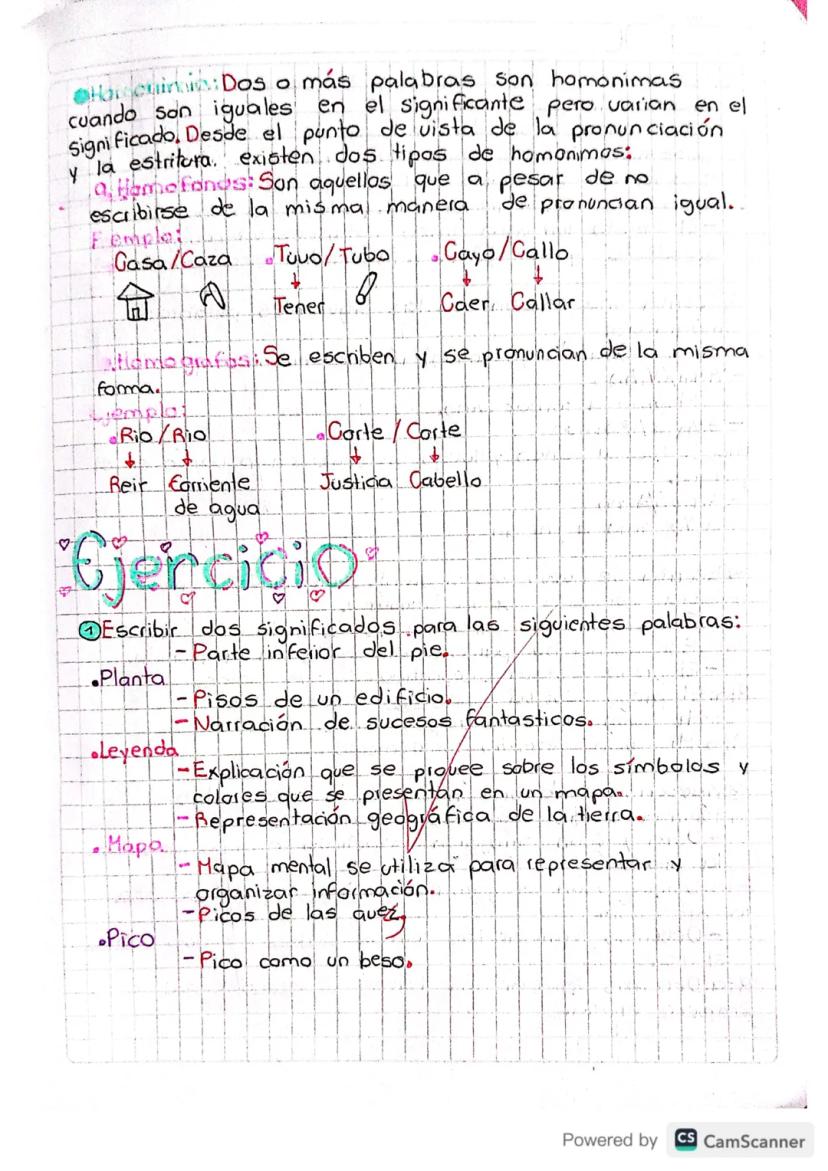 Homonimia: Dos o más palabras son homonimas
cuando son iguales en el significante pero varian en el
significado. Desde el punto de vista de la pronunciación
y la estritura. existen dos tipos de homonimos:
a, Homofonos: Son aquellos que a pesar de no
escribirse de la misma manera de pronuncian igual.
Ejemplo:
Casa/Caza Tuvo/Tubo Cayo/Callo
Tener Caer Callar
Homografos: Se escriben y se pronuncian de la misma
forma.
Ejemplo:
Rio/Rio Corte/Corte
Reir Corriente Justicia Cabello
de agua
Ejercicio
1 Escribir dos significados para las siguientes palabras:
- Parte inferior del pie.
.Planta
- Pisos de un edificio.
- Narración de sucesos fantasticos.
.Leyenda
- Explicación que se provee sobre los símbolos y
colores que se presentan en un mapa.
- Representación geográfica de la tierra.
.Mapa
- Mapa mental se utiliza para representar y
organizar información.
- Picos de las avez
.Pico
- Pico como un beso.
Powered by CS CamScanner